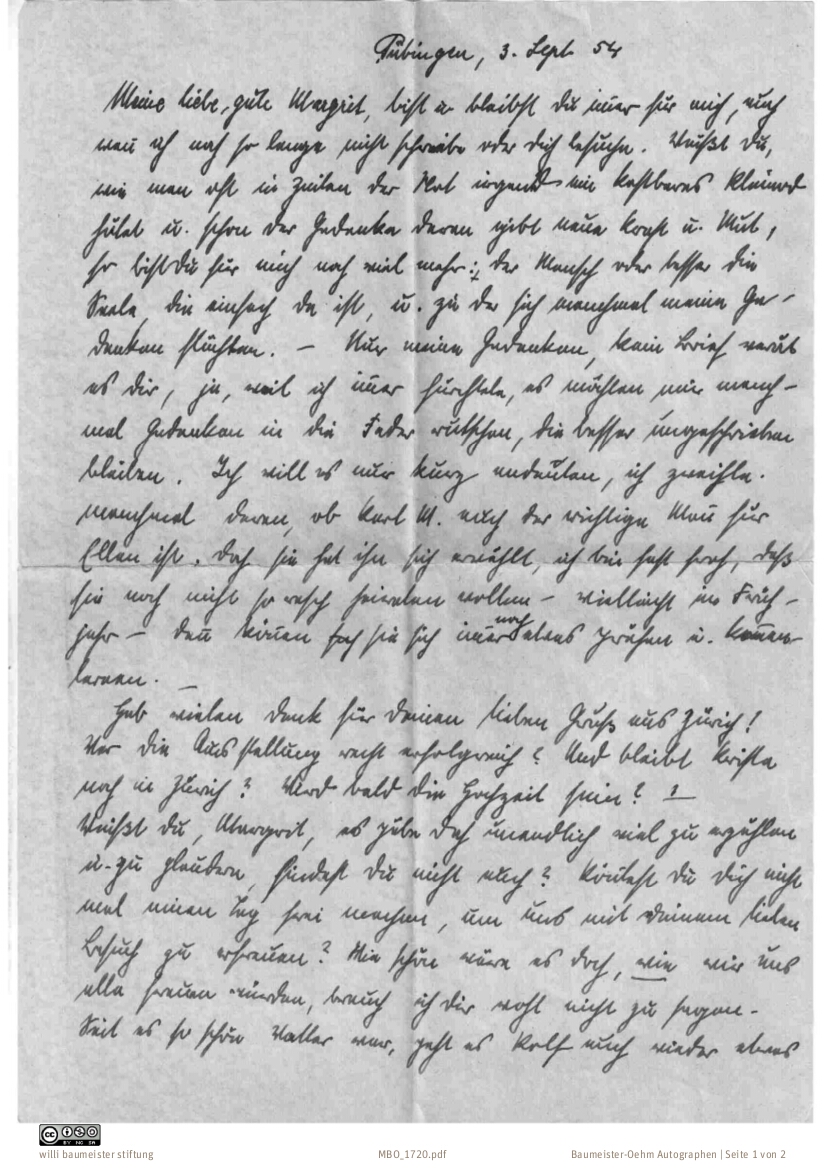 Tübingen, 3. Sept. 54
Meine liebe, gute Margrit, bist u. bleibst du im̄er für mich, auch
wen̄ ich noch so lange nicht schreibe oder dich besuche. Weißt du,
wie man oft in Zeiten der Not irgend ein kostbares Kleinod
hütet u. schon der Gedanke daran gibt neue Kraft u. Mut,
so bist Du für mich noch viel mehr: der Mensch oder besser die
Seele, die einfach da ist, u. zu der sich manchmal meine Ge-
danken flüchten. – Nur meine Gedanken, kein Brief verät
es dir, ja, weil ich im̄er fürchtete, es möchten mir manch-
mal Gedanken in die Feder rutschen, die besser ungeschrieben
bleiben. Ich will es nur kurz andeuten, ich zweifle
manchmal daran, ob Karl M. auch der richtige Man̄ für
Ellen ist. Doch sie hat ihn sich erwählt, ich bin fast froh, daß
sie noch nicht so rasch heiraten wollen – vielleicht im Früh-
jahr – dan̄ kön̄en sie sich im̄er noch etwas prüfen u. ken̄en-
lernen. –
Hab vielen Dank für deinen lieben Gruß aus Zürich!
War die Ausstellung recht erfolgreich? Und bleibt Krista
noch in Zürich? Wird bald die Hochzeit sein? –
Weißt du, Margrit, es gäbe doch unendlich viel zu erzählen
u. zu plaudern, findest du nicht auch? Kön̄test du dich nicht
mal einen Tag frei machen, um uns mit Deinem lieben
Besuch zu erfreuen? Wie schön wäre es doch, wie wir uns
alle freuen würden, brauch ich dir wohl nicht zu sagen.
Seit es so schön Wetter war, geht es Rolf auch wieder etwas
willi baumeister stiftung
MBO_1720.pdf
Baumeister-Oehm Autographen | Seite 1 von 2